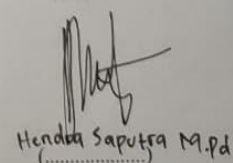 Hendra Saputra M.Pd
(..................)